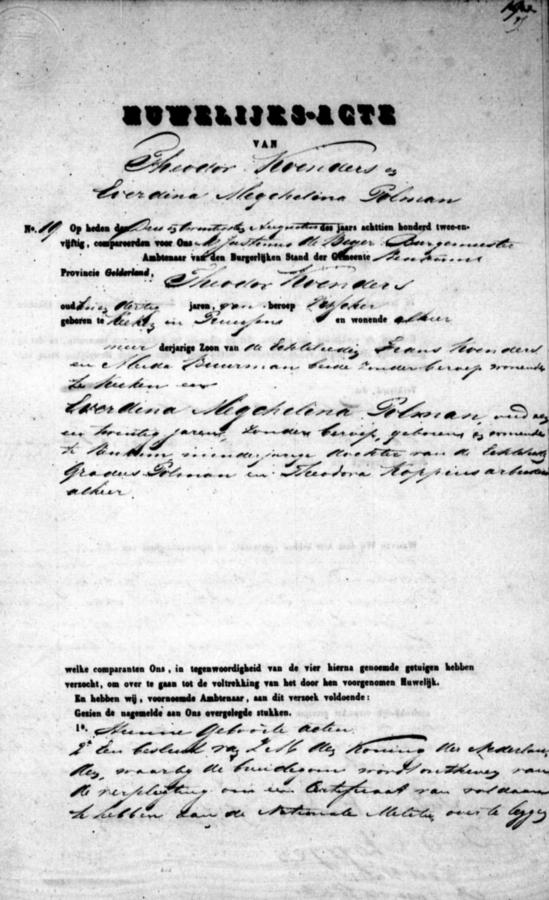 HUWELIJKS-ACTE
VAN
Theodor Koenders en
Everdina Megchelina Polman
No. 19 Op heden den Augustus des jaars achttien honderd twee-en-
vijftig, compareerden voor Ons Burgemeester
Ambtenaar van den Burgerlijken Stand der Gemeente
Provincie Gelderland, Theodor Koenders
oud jaren, van beroep
geboren te in Pruissens en wonende alhier
meer derjarige Zoon van de Echtelieden Frans Koenders
en Buurman beide zonder beroep wonende
te Keeken en
Everdina Megchelina Polman, oud
en twintig jaren, zonder beroep, geboren en wonende
te minderjarige dochter van de Echtelieden
Gradus Polman en Theodora Koppius
alhier
welke comparanten Ons, in tegenwoordigheid van de vier hierna genoemde getuigen hebben
verzocht, om over te gaan tot de voltrekking van het door hen voorgenomen Huwelijk.
En hebben wij, voornoemde Ambtenaar, aan dit verzoek voldoende:
Gezien de nagemelde aan Ons overgelegde stukken.
1o. Hunne Geboorte acten
2o Een besluit van Z.M. den Koning der Nederlan
den, waarbij de bruidegom wordt ontheven van
de verpligting om een Certificaat van voldaan
te hebben aan de Nationale Militie over te leggen